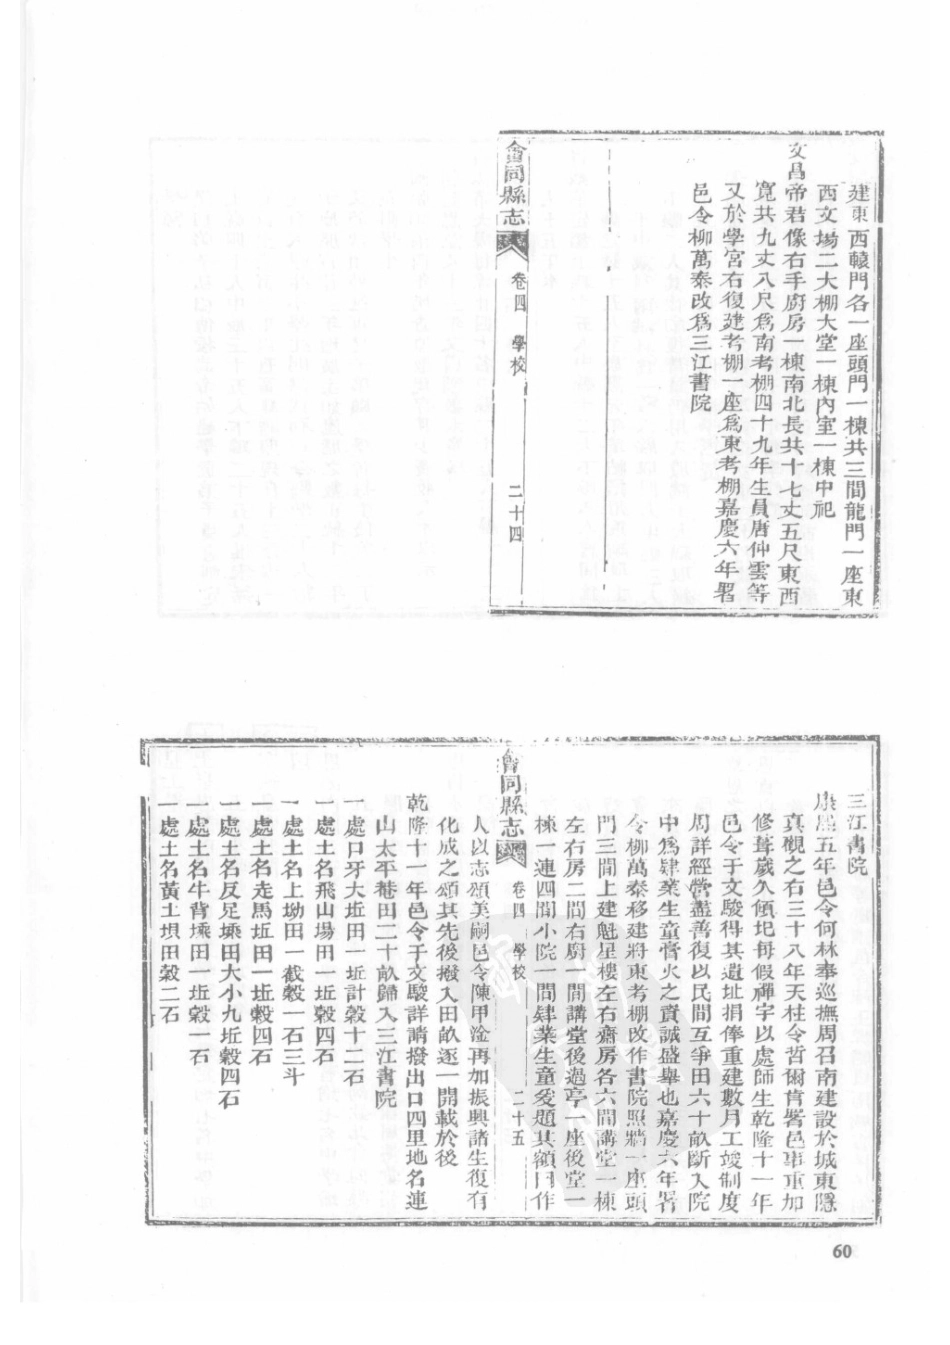 建東西轅門各一座頭門一棟共三間龍門一座東
西文場二大棚大堂一棟內室一棟中祀
文昌帝君像右手廚房一棟南北長共十七丈五尺東西
寬共九丈八尺爲南考棚四十九年生員唐仲雲等
又於學宮右復建考棚一座爲東考棚嘉慶六年署
邑令柳萬泰改爲三江書院
會同縣志
卷四 學校
二十四
三江書院
康熙五年邑令何林奉巡撫周召南建設於城東隱
真觀之右三十八年天柱令哲爾肯署邑事重加
修葺歲久傾圮每假禪宇以處師生乾隆十一年
邑令于文駿得其遺址捐俸重建數月工竣制度
周詳經營盡善復以民間互爭田六十畝斷入院
中爲肄業生童膏火之資誠盛舉也嘉慶六年署
令柳萬泰移建將東考棚改作書院照牆一座頭
門三間上建魁星樓左右齋房各六間講堂一棟
左右房二間右廚一間講堂後過亭一座後堂一
棟一連四間小院一間肄業生童爰題其額曰作
會同縣志
卷四 學校
二十五
人以志頌美嗣邑令陳甲淦再加振興諸生復有
化成之頌其先後撥入田畝逐一開載於後
乾隆十一年邑令于文駿詳請撥出口四里地名連
山太平菴田二十畝歸入三江書院
一處口牙大坵田一坵計穀十二石
一處土名飛山場田一坵穀四石
一處土名上坳田一截穀一石三斗
一處土名走馬坵田一坵穀四石
一處土名反足塖田大小九坵穀四石
一處土名牛背塖田一坵穀一石
一處土名黃土垻田穀二石
60